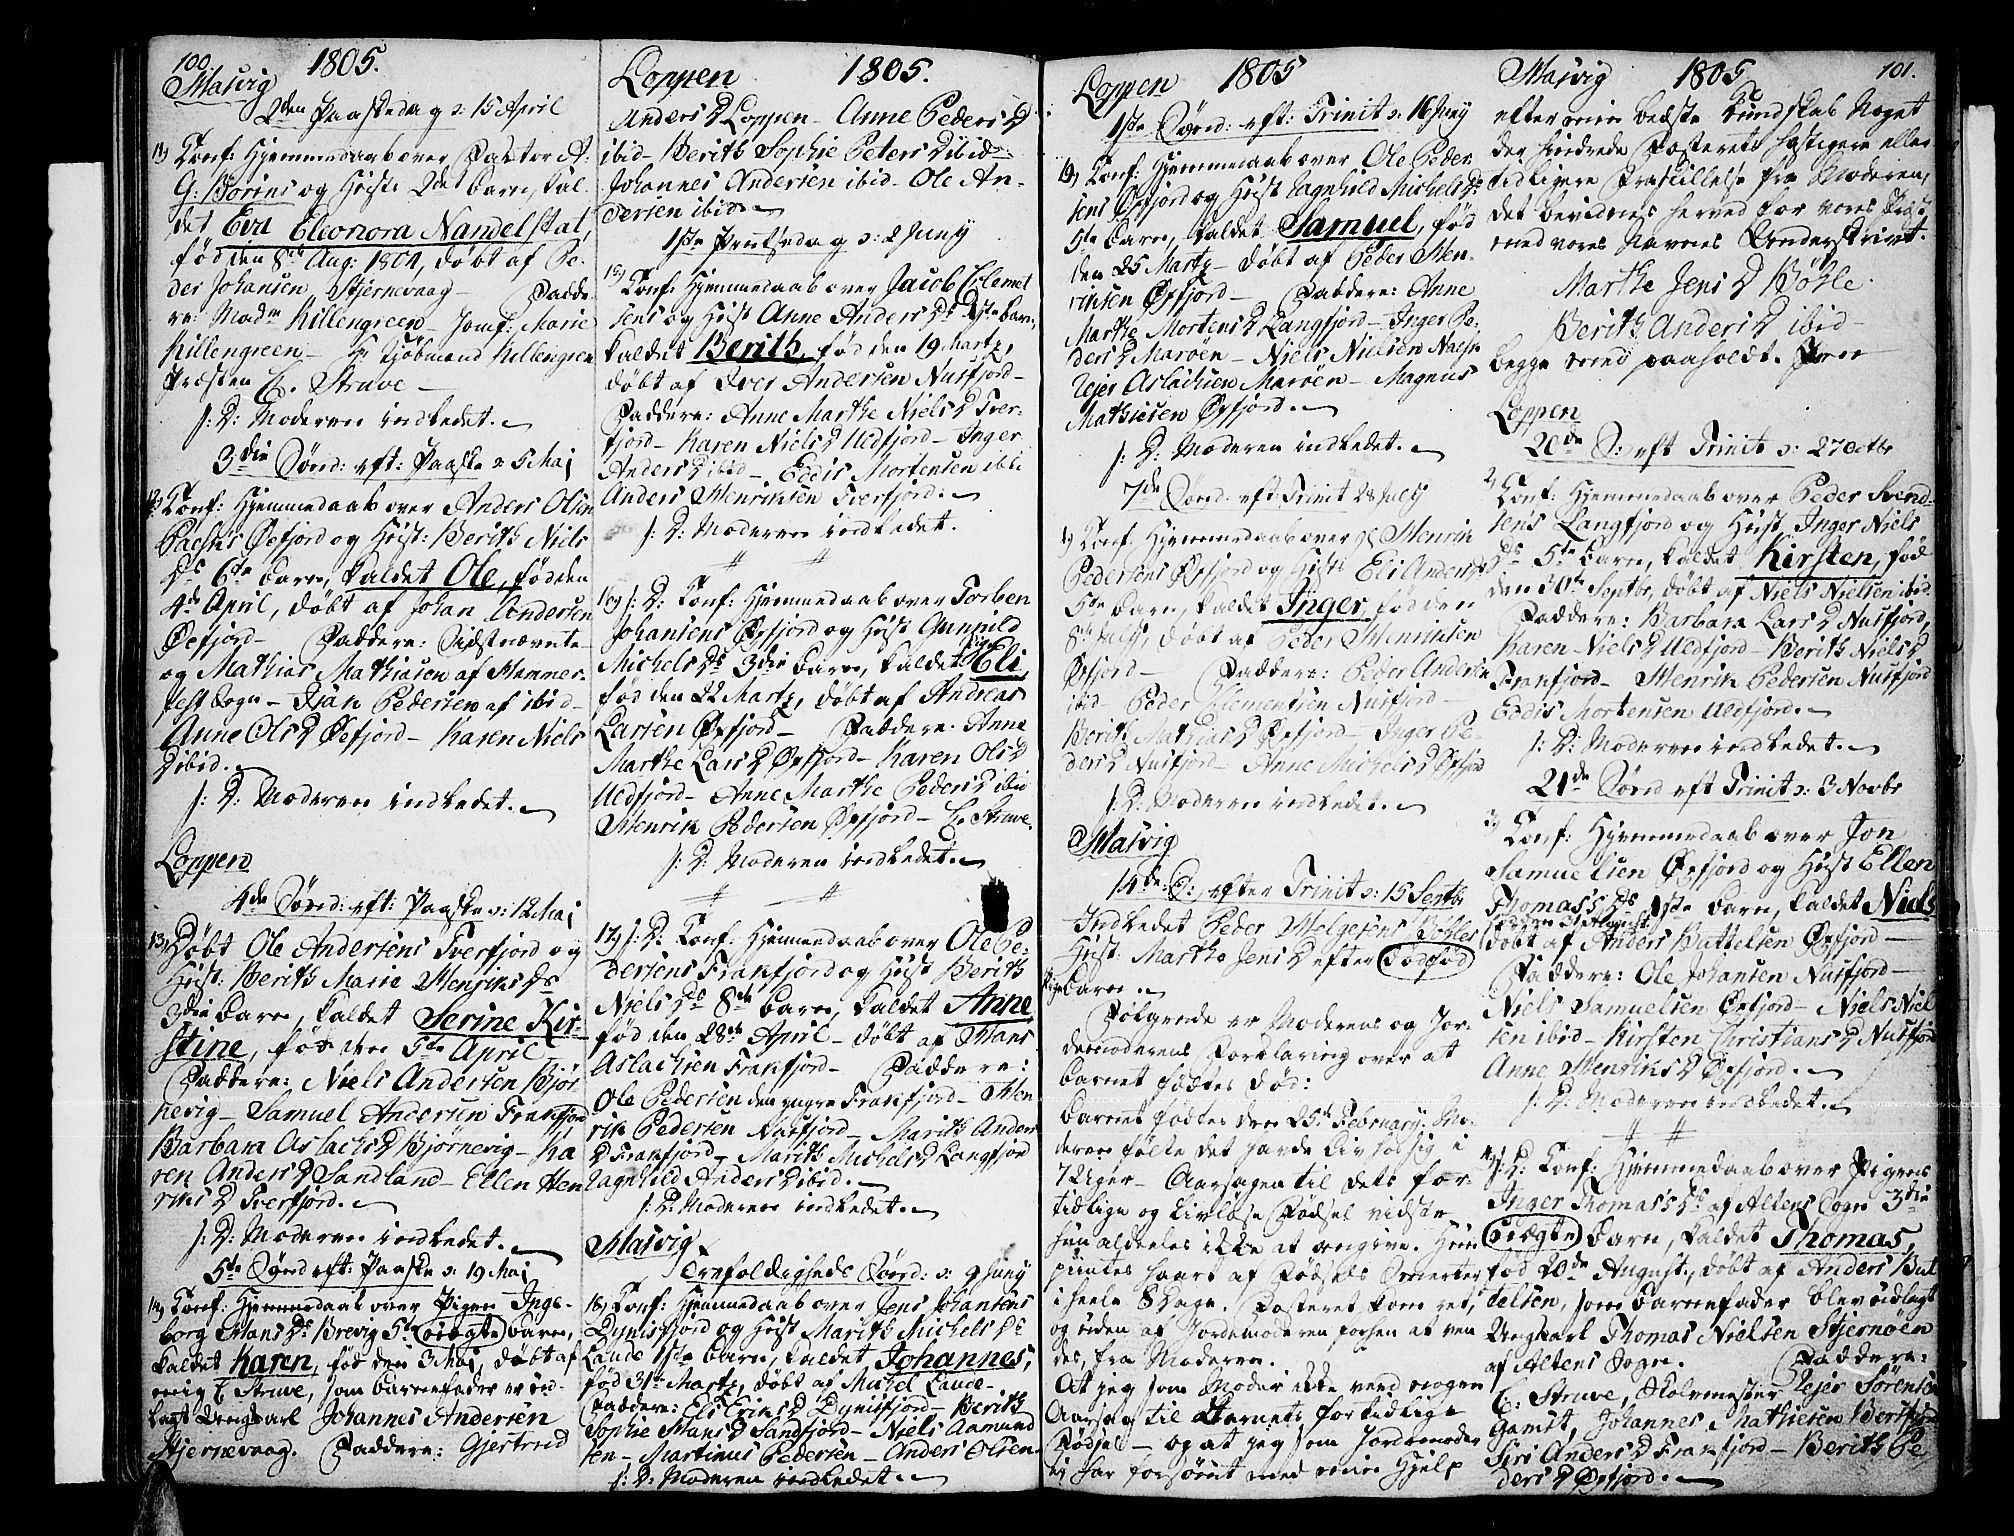 100.
Masvig 1805.
2den Paaskedag ɔ: 15 April
11) Conf: Hjemmedaab over Factor A.
G: Borins og Hust: 2det Barn, kal-
det Eva Eleonora Nandelstat,
fød den 8de Aug: 1804, døbt af Pe-
der Johansen Stjernevaag — Fadde-
re: Madm Killengreen — Jomf: Marie
Killengreen — Hr Kjøbmand Killengreen
Præsten E. Struve —
s: D: Moderen indledet.
3die Sønd: eft: Paaske ɔ: 5 Mai
12) Conf: Hjemmedaab over Anders Olsen
Paches Øefjord og Hust: Berith Niels
Ds 6te Barn, kaldet Ole, fød den
4de April, døbt af Johan Andersen
Øefjord — Faddere: Sidstnævnte
og Mathias Mathiasen af Hammer-
fest Sogn — Isak Pedersen af ibid —
Anne Ols D Øefjord — Karen Niels
D ibid.
s: D: Moderen indledet.
Loppen
4de Sønd: eft: Paaske ɔ: 12 Mai
13) Døbt Ole Andersens Tverfjord og
Hust: Berith Marie Henriks Ds
3die Barn, kaldet Serine Kir-
stine, fød den 5te April
Faddere: Niels Andersen Bjør
nevig — Samuel Andersen Franfjord
Barbara Aslachs D Bjørnevig — Ka
ren Anders D Sandland — Ellen Hen
riks D Tverfjord.
s: D: Moderen indledet.
5te Sønd eft: Paaske ɔ: 19 Mai
14) Conf: Hjemmedaab over Pigen Inge-
borg Hans Ds Brevig 5te uægte Barn,
kaldet Karen, fød den 3 Mai, døbt af
mig E Struve, som Barnefader er ud-
lagt Ungkarl Johannes Andersen
Stjernevaag. Faddere: Gjertrud
Loppen 1805.
Anders D Loppen — Anne Peders D
ibid — Berith Sophie Peters D ibid —
Johannes Andersen ibid — Ole An-
dersen ibid.
1ste Pintsedag ɔ: 2 Juny
15) Conf: Hjemmedaab over Jacob Clemet
sens og Hust Anne Anders Ds Barn,
kaldet Berith, fød den 19 Martz,
døbt af Iver Andersen Nusfjord —
Faddere: Anne Marthe Niels D Tver-
fjord — Karen Niels D Uldfjord — Inger
Anders D ibid — Eddis Mortensen ibid
Anders Henriksen Tverfjord.
s: D: Moderen indledet.
16) s: D: Conf: Hjemmedaab over Torben
Johansens Øxfjord og Hust Gunnild
Michels Ds 3die Barn, kaldet Eli,
fød den 22 Martz, døbt af Andreas
Larsen Øxfjord — Faddere: Anne
Marthe Lars D Øxfjord — Karen Ols D
Uldfjord — Anne Marthe Peders D ibid
Henrik Pedersen Øxfjord — E. Struve.
s: D: Moderen indledet.
17) s: D: Conf: Hjemmedaab over Ole Pe-
dersens Franfjord og Hust Berith
Niels Ds 8de Barn, kaldet Anne
fød den 28de April — døbt af Hans
Aslachsen Franfjord — Faddere:
Ole Pedersen den yngre Franfjord — Hen
rik Pedersen Nusfjord — Marith Anders
D Franfjord — Marith Michels D Langfjord
Ragnhild Anders D ibid.
s: D: Moderen indledet.
Masvig
Trefoldigheds Sønd: ɔ: 9 Juny
18) Conf: Hjemmedaab over Jens Johansens
Dynisfjord og Hust Marith Michels Ds
Laude 1ste Barn, kaldet Johannes,
fød 31te Martz, døbt af Michel Laude —
Faddere: Els Eriks D Dynisfjord — Berith
Sophie Hans D Sandfjord — Niels Aamund
sen — Martinus Pedersen — Anders Olsen
s: D: Moderen indledet.
Loppen 1805
1ste Sønd: eft: Trinit ɔ: 16 Juny
19) Conf: Hjemmedaab over Ole Peder
sens Øxfjord og Hust Ragnhild Michels Ds
5te Barn, kaldet Samuel, fød
den 25 Martz — døbt af Peder Hen-
riksen Øxfjord — Faddere: Anne
Marthe Mortens D Langfjord — Inger Pe-
ders D Marøen — Niels Nielsen
Rejer Aslachsen Marøen — Magnus
Mathiesen Øxfjord.
s: D: Moderen indledet.
7de Sønd: eft Trinit 28 July
1) Conf: Hjemmedaab over Henrik
Pedersens Øxfjord og Hust: Eli Anders Ds
5te Barn, kaldet Inger, fød den
8de July, døbt af Peder Henriksen
Øxfjord — Faddere: Peder Andersen
ibid — Peder Clementsen Nusfjord —
Berith Mathias D Øxfjord — Inger Pe-
ders D Nusfjord — Anne Michels D Øxfjord
s: D: Moderen indledet.
Masvig
14de S: efter Trinit ɔ: 15 Septbr
Indledet Peder Helgesens Bøhles
Hust: Marthe Jens D efter dødfød
Pige Barn.
Følgende er Moderens og Jor-
demoderens Forklaring over at
Barnet fødtes død:
Barnet fødtes den 25de February. Mo-
deren følte det havde Liv hos sig i
7 Uger — Aarsagen til dets for-
tidlige og Livløse Fødsel vidste
hun aldeeles ikke at angive. Hun
piintes haart af Fødsels Smerter
i heele 8 Dage. Fosteret kom ret,
og uden af Jordemoderen forhen at ven
des, fra Moderen.
At jeg som Moder ikke veed nogen
Aarsag til Barnets fortidlige
Fødsel — og at jeg som Jordemoder
ej har forsømt med min Hjelp
Masvig 1805 101.
efter min bedste Kundskab Noget
der hindrede Fosterets hastigere eller
tidligere Fraskillelse fra Moderen,
det bevidnes herved for vores Præst
med vores Navnes Underskrivt.
Marthe Jens D Bøhle.
Berith Anders D ibid —
begge med paaholdt Pen
Loppen
20de S: eft Trinit ɔ: 27 Octbr
2) Conf: Hjemmedaab over Peder Svend-
sens Langfjord og Hust Inger Niels
Ds 5te Barn, kaldet Kirsten, fød
den 30te Septbr, døbt af Niels Nielsen ibid
Faddere: Barbara Lars D Nusfjord,
Karen Niels D Uldfjord — Berith Niels D
Franfjord — Henrik Pedersen Nusfjord
Eddis Mortensen Uldfjord.
s: D: Moderen indledet.
21de Sønd eft Trinit ɔ: 3 Novbr
3) Conf: Hjemmedaab over Jon
Samuelsen Øxfjord og Hust Ellen
Thomass Ds 1ste Barn, kaldet Niels
fød den 31 August
døbt af Anders Buttelsen Øxfjord —
Faddere: Ole Johansen Nusfjord —
Niels Samuelsen Øxfjord — Niels Niel
sen ibid — Kirsten Christians D Nusfjord
Anne Henriks D Øxfjord.
s: D: Moderen indledet.
4) s: D: Conf: Hjemmedaab over Pigens
Inger Thomas's Ds af Altens Sogn 3die
uægte Barn, kaldet Thomas,
fød 20de August, døbt af Anders But
telsen, som Barnefader blev udlagt
Ungkarl Thomas Nielsen Stjernøen
af Altens Sogn. Faddere:
E. Struve, Skolemester Rejer Sørensen
Gamst, Johannes Mathiesen Bersfjord
Siri Anders D Franfjord — Berith Pe
ders D Øxfjord.